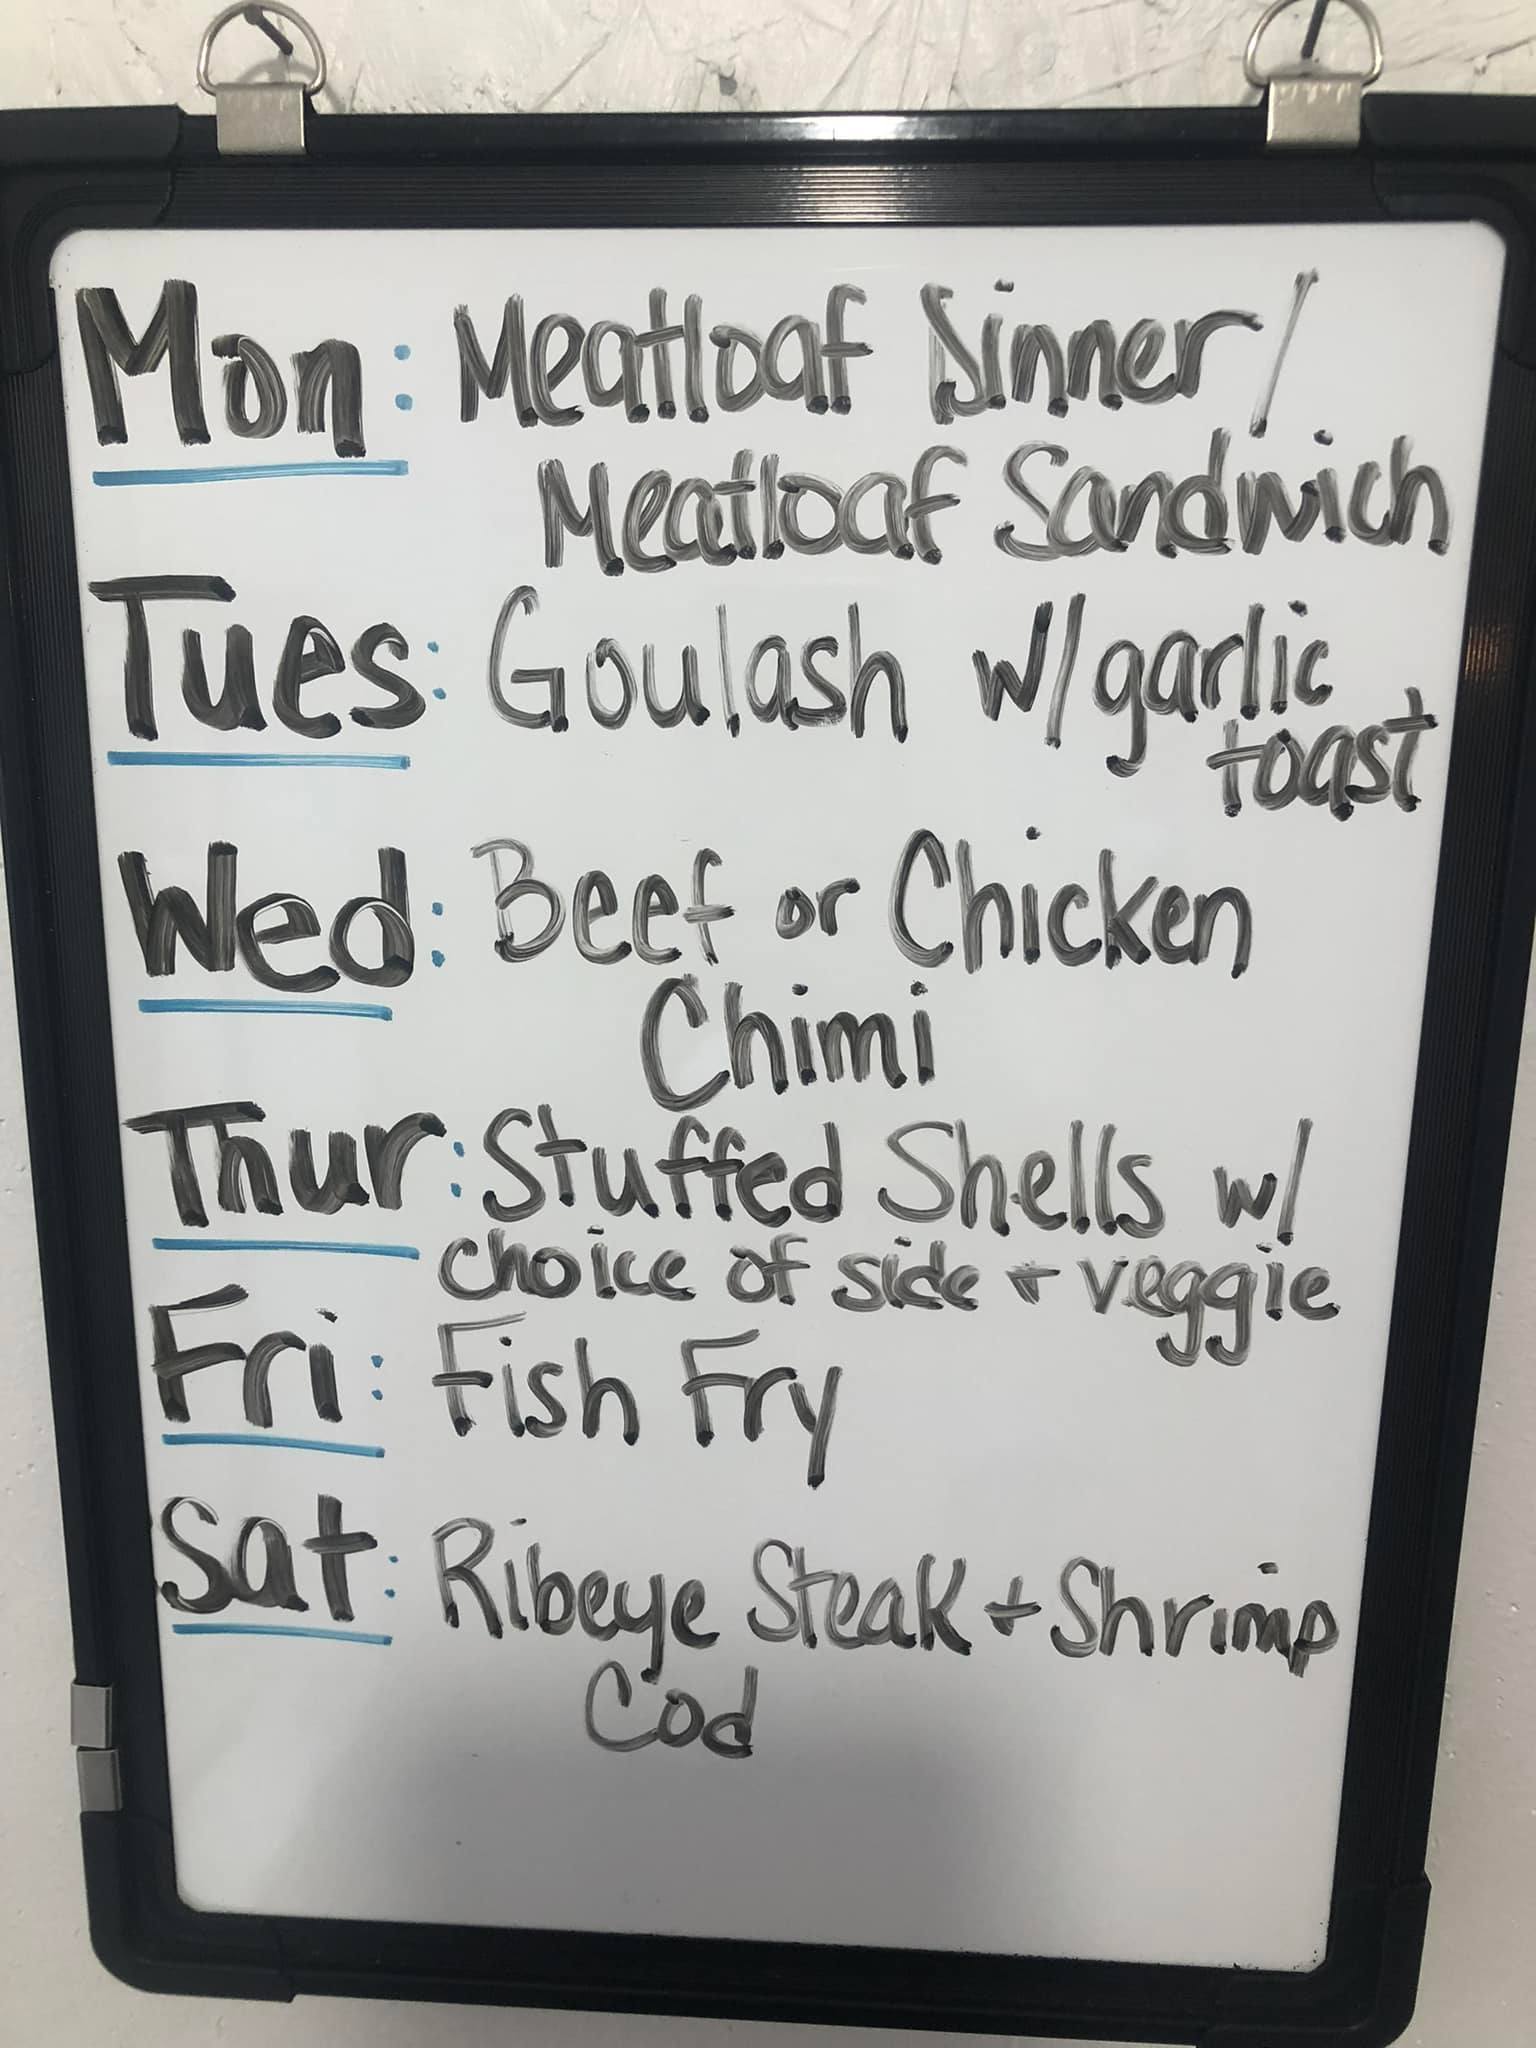 Mon: Meatloaf Dinner /
Meatloaf Sandwich
Tues: Goulash w/ garlic
toast
Wed: Beef or Chicken
Chimi
Thur: Stuffed Shells w/
choice of side + veggie
Fri: Fish Fry
Sat: Ribeye Steak + Shrimp
Cod